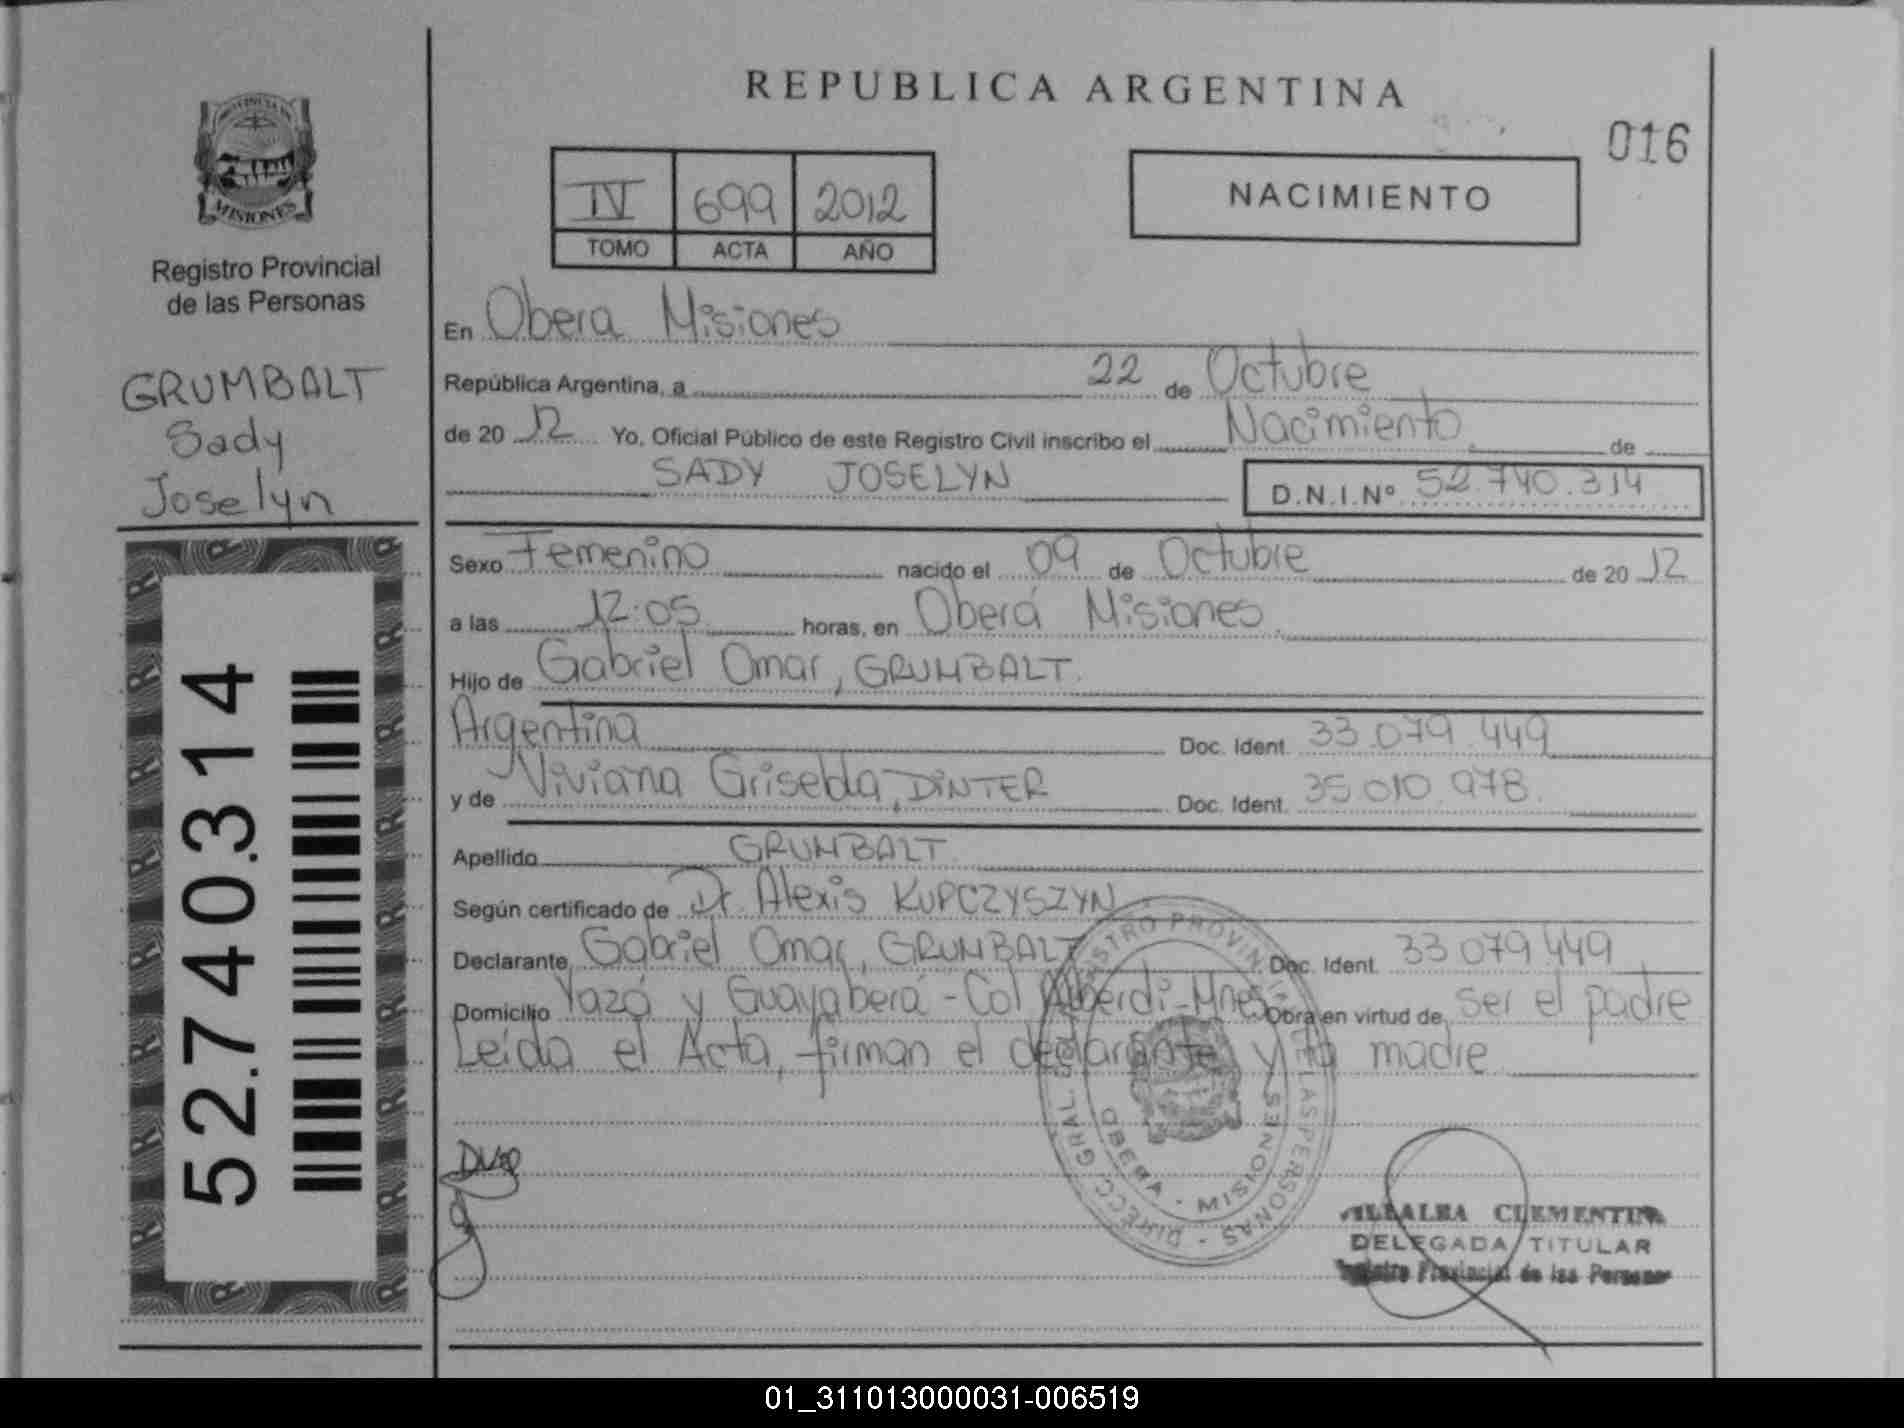 REPUBLICA ARGENTINA
016
PROVINCIA DE
MISIONES
Registro Provincial
de las Personas
IV 699 2012
TOMO ACTA AÑO
NACIMIENTO
GRUMBALT
Sady
Joselyn
52.740.314
En Obera Misiones
República Argentina, a 22 de Octubre
de 20 12 Yo, Oficial Público de este Registro Civil inscribo el Nacimiento de
SADY JOSELYN D.N.I.Nº 52.740.314
Sexo Femenino nacido el 09 de Octubre de 20 12
a las 12:05 horas, en Oberá Misiones
Hijo de Gabriel Omar, GRUMBALT.
Argentina Doc. Ident. 33.079.449
y de Viviana Griselda, DiNTER Doc. Ident. 35.010.978.
Apellido GRUMBALT
Según certificado de Dr. Alexis KUPCZYSZYN
Declarante Gabriel Omar, GRUMBALT Doc. Ident. 33.079.449
Domicilio Yazá y Guayaberá - Col Alberdi - Mnes Obra en virtud de ser el padre
Leida el Acta, firman el declarante y la madre
DIRECC. GRAL. REGISTRO PROVINCIAL DE LAS PERSONAS
OBERA - MISIONES
VILLALBA CLEMENTINA
DELEGADA TITULAR
Registro Provincial de las Personas
01_311013000031-006519